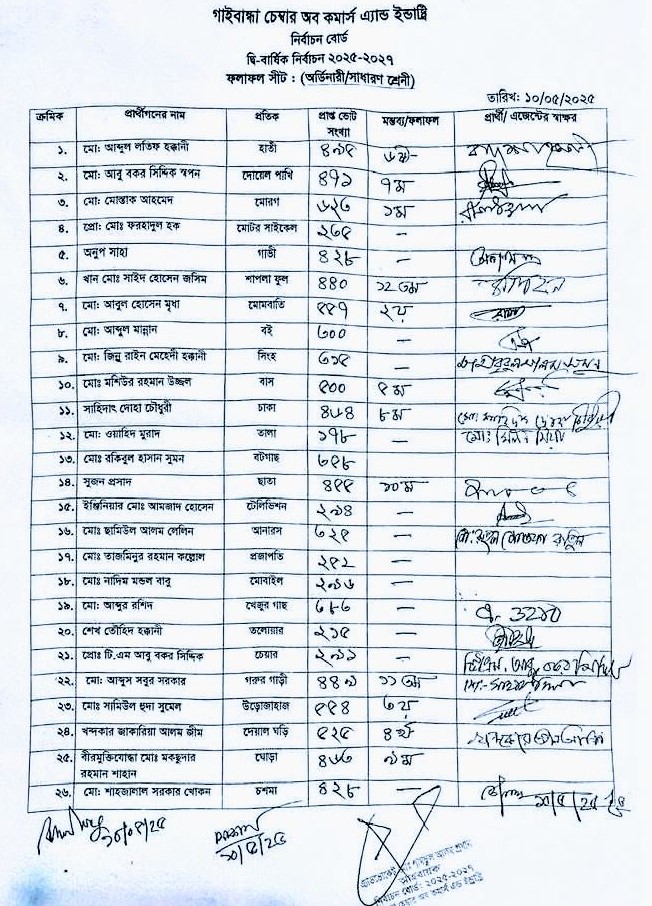 গাইবান্ধা চেম্বার অব কমার্স এ্যান্ড ইন্ডাষ্ট্রি
নির্বাচন বোর্ড
দ্বি-বার্ষিক নির্বাচন ২০২৫-২০২৭
ফলাফল সীট : (অর্ডিনারী/সাধারণ শ্রেনী)
তারিখ: ১০/০৫/২০২৫
ক্রমিক প্রার্থীগনের নাম প্রতিক প্রাপ্ত ভোট সংখ্যা মন্তব্য/ফলাফল প্রার্থী/ এজেন্টের স্বাক্ষর
১. মো: আব্দুল লতিফ হক্কানী হাতী ৪৯৫ ৬ষ্ঠ
২. মো: আবু বকর সিদ্দিক স্বপন দোয়েল পাখি ৪৭১ ৭ম
৩. মো: মোস্তাক আহমেদ মোরগ ৬২৩ ১ম
৪. প্রো: মোঃ ফরহাদুল হক মোটর সাইকেল ২৬৫ –
৫. অনুপ সাহা গাভী ৪২৮ –
৬. খান মোঃ সাইদ হোসেন জসিম শাপলা ফুল ৪৪০ ১২তম
৭. মো: আবুল হোসেন মৃধা মোমবাতি ৫৫৭ ২য়
৮. মো: আব্দুল মান্নান বই ৩০০ –
৯. মো: জিন্নু রাইন মেহেদী হক্কানী সিংহ ৩১৫ –
১০. মোঃ মশিউর রহমান উজ্জল বাস ৫০০ ৫ম
১১. সাহিদাৎ দোহা চৌধুরী চাকা ৪৬৪ ৮ম
১২. মো: ওয়াহিদ মুরাদ তালা ১৭৮ – মো: মিলন মিয়া
১৩. মোঃ রকিবুল হাসান সুমন বটগাছ ৩৫৮
১৪. সুজন প্রসাদ ছাতা ৪৫৫ ১০ম
১৫. ইঞ্জিনিয়ার মোঃ আমজাদ হোসেন টেলিভিশন ২৯৪ –
১৬. মোঃ ছামিউল আলম লেলিন আনারস ৩২৫ –
১৭. মোঃ তাজমিনুর রহমান কল্লোল প্রজাপতি ২৫২ –
১৮. মোঃ নাদিম মন্ডল বাবু মোবাইল ২৯৬ –
১৯. মো: আব্দুর রশিদ খেজুর গাছ ৩৮৬ –
২০. শেখ তৌহিদ হক্কানী তলোয়ার ২১৫ –
২১. প্রোঃ টি.এম আবু বকর সিদ্দিক চেয়ার ২৯১ –
২২. মো: আব্দুস সবুর সরকার গরুর গাড়ী ৪৪৯ ১১তম
২৩. মোঃ সামিউল হুদা সুমেল উড়োজাহাজ ৫৫৪ ৩য়
২৪. খন্দকার জাকারিয়া আলম জীম দেয়াল ঘড়ি ৫২৫ ৪র্থ
২৫. বীরমুক্তিযোদ্ধা মোঃ মকছুদার রহমান শাহান ঘোড়া ৪৬৩ ৯ম
২৬. মো: শাহজালাল সরকার খোকন চশমা ৪২৮ – ১০/৫/২৫
১০/০৫/২৫
১০/৫/২৫
আহবায়ক
নির্বাচন বোর্ড: ২০২৫-২০২৭